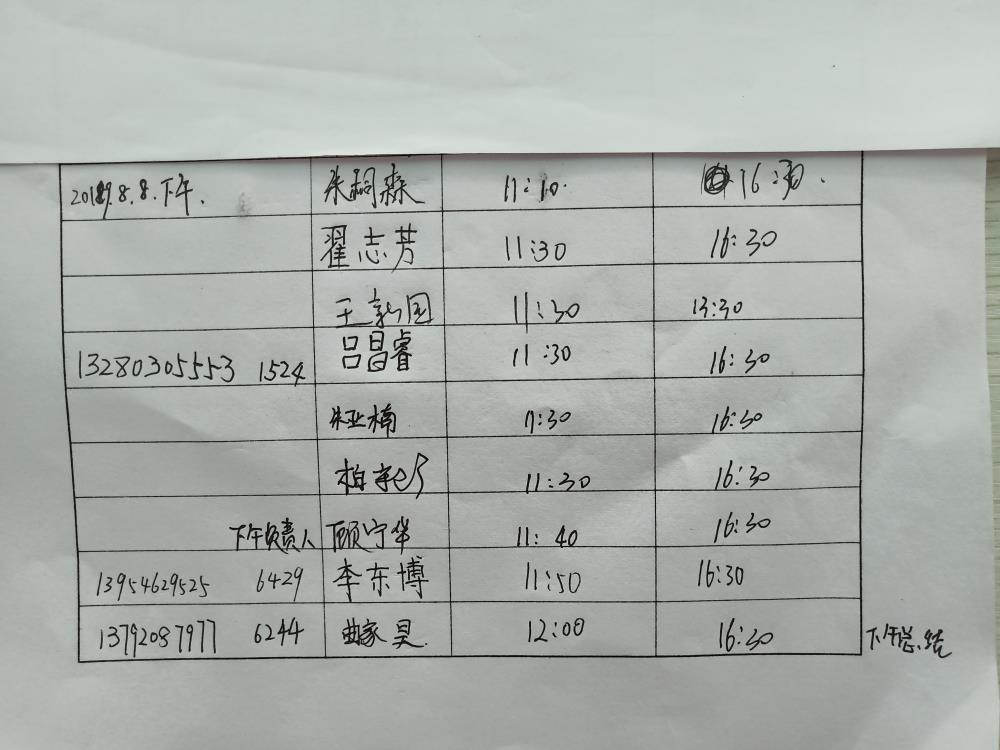 2019.8.8.下午. 朱桐森 11:10. 16:30.
翟志芳 11:30 16:30
王新国 11:30 13:30
13280305553 1524 吕昌睿 11:30 16:30
朱亚楠 11:30 16:30
柏 11:30 16:30
下午负责人 顾宁华 11:40 16:30
13954629525 6429 李东博 11:50 16:30
13792087977 6244 曲家昊. 12:00 16:30 下午总结